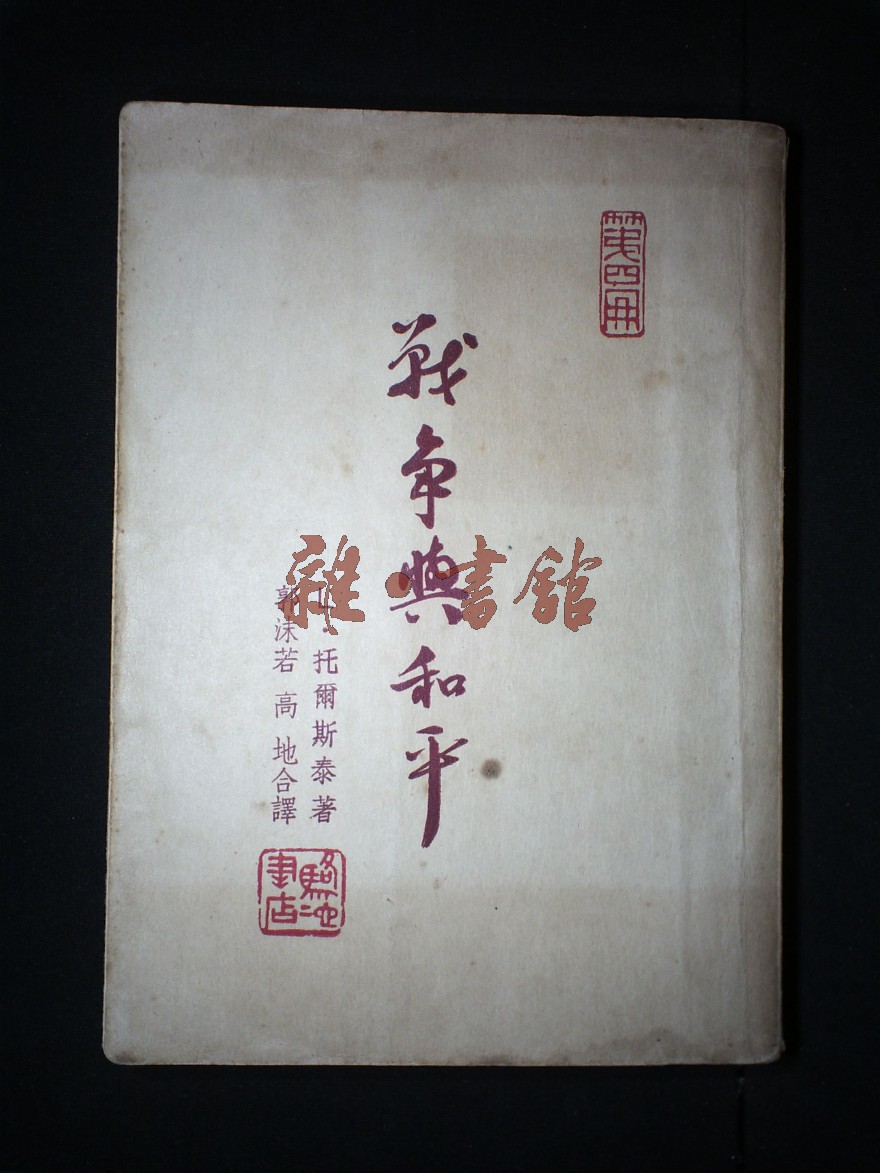 第四冊
戰争與和平
L·托爾斯泰著
郭沫若 高地合譯
駱駝書店
雜·書館